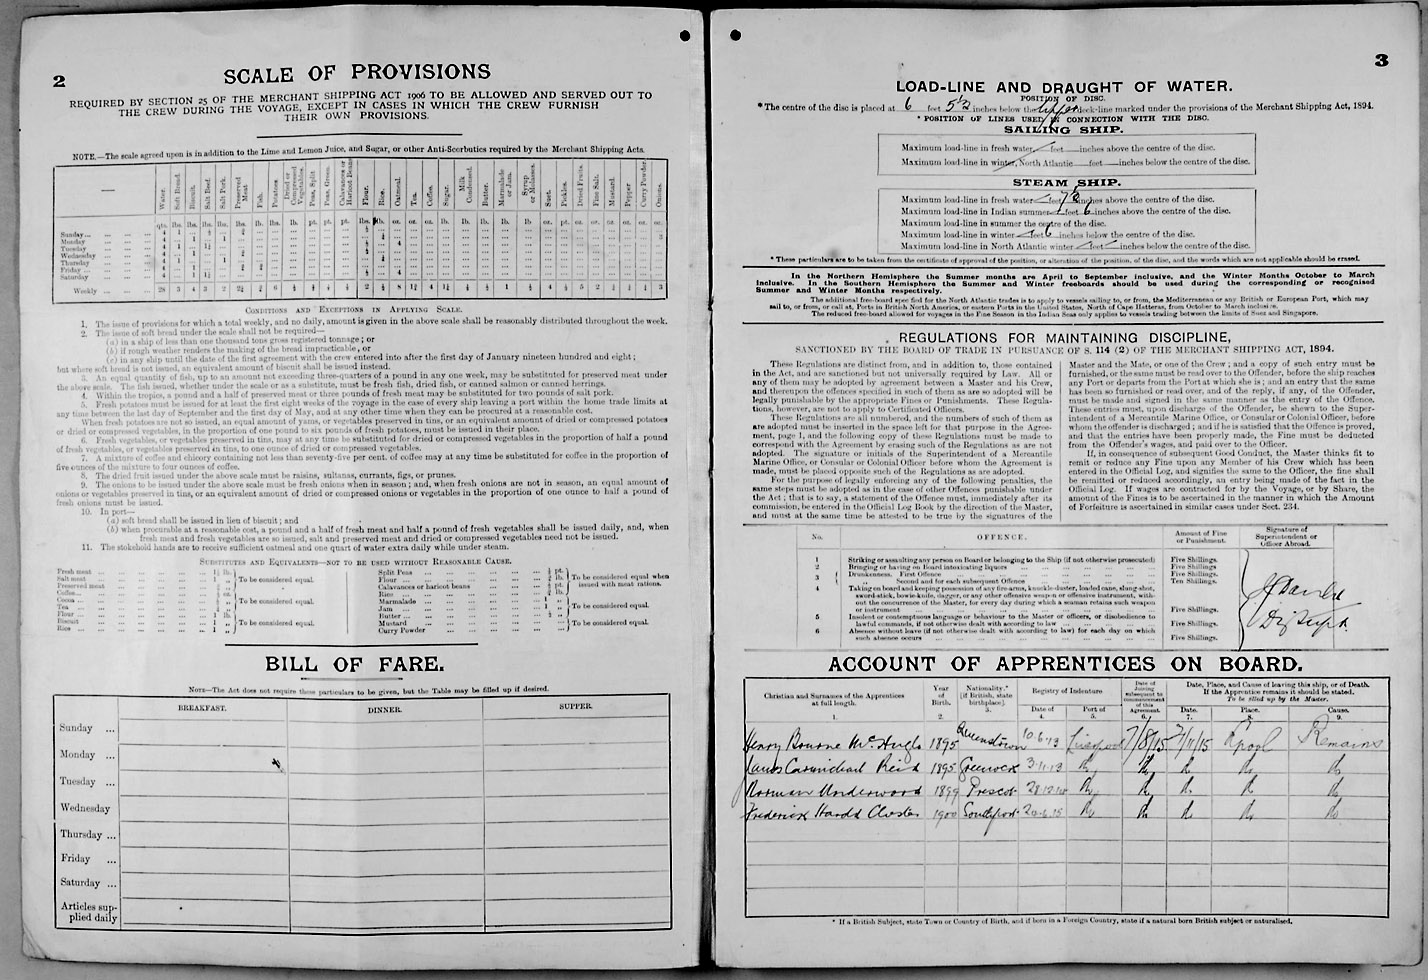 2
SCALE OF PROVISIONS
REQUIRED BY SECTION 25 OF THE MERCHANT SHIPPING ACT 1906 TO BE ALLOWED AND SERVED OUT TO
THE CREW DURING THE VOYAGE, EXCEPT IN CASES IN WHICH THE CREW FURNISH
THEIR OWN PROVISIONS.
NOTE.—The scale agreed upon is in addition to the Lime and Lemon Juice, and Sugar, or other Anti-Scorbutics required by the Merchant Shipping Acts.
Water. Soft Bread. Biscuit. Salt Beef. Salt Pork. Preserved Meat Fish. Potatoes. Dried or Compressed Vegetables. Peas, Split. Peas, Green. Calavances or Haricot Beans. Flour. Rice. Oatmeal. Tea. Coffee. Sugar. Milk Condensed. Butter. Marmalade or Jam. Syrup or Molasses. Suet. Pickles. Dried Fruits. Fine Salt. Mustard. Pepper Curry Powder. Onions.
Sunday
Monday
Tuesday
Wednesday
Thursday
Friday
Saturday
Weekly
CONDITIONS AND EXCEPTIONS IN APPLYING SCALE.
1. The issue of provisions for which a total weekly, and no daily, amount is given in the above scale shall be reasonably distributed throughout the week.
2. The issue of soft bread under the scale shall not be required—
(a) in a ship of less than one thousand tons gross registered tonnage; or
(b) if rough weather renders the making of the bread impracticable, or
(c) in any ship until the date of the first agreement with the crew entered into after the first day of January nineteen hundred and eight;
but where soft bread is not issued, an equivalent amount of biscuit shall be issued instead.
3. An equal quantity of fish, up to an amount not exceeding three-quarters of a pound in any one week, may be substituted for preserved meat under
the above scale. The fish issued, whether under the scale or as a substitute, must be fresh fish, dried fish, or canned salmon or canned herrings.
4. Within the tropics, a pound and a half of preserved meat or three pounds of fresh meat may be substituted for two pounds of salt pork.
5. Fresh potatoes must be issued for at least the first eight weeks of the voyage in the case of every ship leaving a port within the home trade limits at
any time between the last day of September and the first day of May, and at any other time when they can be procured at a reasonable cost.
When fresh potatoes are not so issued, an equal amount of yams, or vegetables preserved in tins, or an equivalent amount of dried or compressed potatoes
or dried or compressed vegetables, in the proportion of one pound to six pounds of fresh potatoes, must be issued in their place.
6. Fresh vegetables, or vegetables preserved in tins, may at any time be substituted for dried or compressed vegetables in the proportion of half a pound
of fresh vegetables, or vegetables preserved in tins, to one ounce of dried or compressed vegetables.
7. A mixture of coffee and chicory containing not less than seventy-five per cent. of coffee may at any time be substituted for coffee in the proportion of
five ounces of the mixture to four ounces of coffee.
8. The dried fruit issued under the above scale must be raisins, sultanas, currants, figs, or prunes.
9. The onions to be issued under the above scale must be fresh onions when in season; and, when fresh onions are not in season, an equal amount of
onions or vegetables preserved in tins, or an equivalent amount of dried or compressed onions or vegetables in the proportion of one ounce to half a pound of
fresh onions must be issued.
10. In port—
(a) soft bread shall be issued in lieu of biscuit; and
(b) when procurable at a reasonable cost, a pound and a half of fresh meat and half a pound of fresh vegetables shall be issued daily, and, when
fresh meat and fresh vegetables are so issued, salt and preserved meat and dried or compressed vegetables need not be issued.
11. The stokehold hands are to receive sufficient oatmeal and one quart of water extra daily while under steam.
SUBSTITUTES AND EQUIVALENTS—NOT TO BE USED WITHOUT REASONABLE CAUSE.
Fresh meat
Salt meat
Preserved meat
To be considered equal.
Coffee
Cocoa
Tea
To be considered equal.
Flour
Biscuit
Rice
To be considered equal.
Split Peas
Flour
Calavances or haricot beans
Rice
To be considered equal when issued with meat rations.
Marmalade
Jam
Butter
To be considered equal.
Mustard
Curry Powder
To be considered equal.
BILL OF FARE.
NOTE—The Act does not require these particulars to be given, but the Table may be filled up if desired.
BREAKFAST. DINNER. SUPPER.
Sunday
Monday
Tuesday
Wednesday
Thursday
Friday
Saturday
Articles sup-
plied daily
3
LOAD-LINE AND DRAUGHT OF WATER.
POSITION OF DISC.
*The centre of the disc is placed at 6 feet 5½ inches below the upper deck-line marked under the provisions of the Merchant Shipping Act, 1894.
* POSITION OF LINES USED IN CONNECTION WITH THE DISC.
SAILING SHIP.
Maximum load-line in fresh water feet inches above the centre of the disc.
Maximum load-line in winter, North Atlantic feet inches below the centre of the disc.
STEAM SHIP.
Maximum load-line in fresh water feet inches above the centre of the disc.
Maximum load-line in Indian summer feet 6 inches above the centre of the disc.
Maximum load-line in summer the centre of the disc.
Maximum load-line in winter feet 6 inches below the centre of the disc.
Maximum load-line in North Atlantic winter feet inches below the centre of the disc.
* These particulars are to be taken from the certificate of approval of the position, or alteration of the position, of the disc, and the words which are not applicable should be erased.
In the Northern Hemisphere the Summer months are April to September inclusive, and the Winter Months October to March
inclusive. In the Southern Hemisphere the Summer and Winter freeboards should be used during the corresponding or recognised
Summer and Winter Months respectively.
The additional free-board specified for the North Atlantic trades is to apply to vessels sailing to, or from, the Mediterranean or any British or European Port, which may
sail to, or from, or call at, Ports in British North America, or eastern Ports in the United States, North of Cape Hatteras, from October to March inclusive.
The reduced free-board allowed for voyages in the Fine Season in the Indian Seas only applies to vessels trading between the limits of Suez and Singapore.
REGULATIONS FOR MAINTAINING DISCIPLINE,
SANCTIONED BY THE BOARD OF TRADE IN PURSUANCE OF S. 114 (2) OF THE MERCHANT SHIPPING ACT, 1894.
These Regulations are distinct from, and in addition to, those contained
in the Act, and are sanctioned but not universally required by Law. All or
any of them may be adopted by agreement between a Master and his Crew,
and thereupon the offences specified in such of them as are so adopted will be
legally punishable by the appropriate Fines or Punishments. These Regula-
tions, however, are not to apply to Certificated Officers.
These Regulations are all numbered, and the numbers of such of them as
are adopted must be inserted in the space left for that purpose in the Agree-
ment, page 1, and the following copy of these Regulations must be made to
correspond with the Agreement by erasing such of the Regulations as are not
adopted. The signature or initials of the Superintendent of a Mercantile
Marine Office, or Consular or Colonial Officer before whom the Agreement is
made, must be placed opposite such of the Regulations as are adopted.
For the purpose of legally enforcing any of the following penalties, the
same steps must be adopted as in the case of other Offences punishable under
the Act; that is to say, a statement of the Offence must, immediately after its
commission, be entered in the Official Log Book by the direction of the Master,
and must at the same time be attested to be true by the signatures of the
Master and the Mate, or one of the Crew; and a copy of such entry must be
furnished, or the same must be read over to the Offender, before the ship reaches
any Port or departs from the Port at which she is; and an entry that the same
has been so furnished or read over, and of the reply, if any, of the Offender,
must be made and signed in the same manner as the entry of the Offence.
These entries must, upon discharge of the Offender, be shewn to the Super-
intendent of a Mercantile Marine Office, or Consular or Colonial Officer, before
whom the offender is discharged; and if he is satisfied that the Offence is proved,
and that the entries have been properly made, the Fine must be deducted
from the Offender's wages, and paid over to the Officer.
If, in consequence of subsequent Good Conduct, the Master thinks fit to
remit or reduce any Fine upon any Member of his Crew which has been
entered in the Official Log, and signifies the same to the Officer, the fine shall
be remitted or reduced accordingly, an entry being made of the fact in the
Official Log. If wages are contracted for by the Voyage, or by Share, the
Amount of the Fines is to be ascertained in the manner in which the Amount
of Forfeiture is ascertained in similar cases under Sect. 234.
No. OFFENCE. Amount of Fine or Punishment. Signature of Superintendent or Officer Abroad.
1 Striking or assaulting any person on Board or belonging to the Ship (if not otherwise prosecuted) Five Shillings.
2 Bringing or having on Board intoxicating liquors Five Shillings.
3 Drunkenness. First Offence Five Shillings.
Second and for each subsequent Offence Ten Shillings.
4 Taking on board and keeping possession of any fire-arms, knuckle-duster, loaded cane, slung-shot,
sword-stick, bowie-knife, dagger, or any other offensive weapon or offensive instrument, with-
out the concurrence of the Master, for every day during which a seaman retains such weapon
or instrument Five Shillings.
5 Insolent or contemptuous language or behaviour to the Master or officers, or disobedience to
lawful commands, if not otherwise dealt with according to law Five Shillings.
6 Absence without leave (if not otherwise dealt with according to law) for each day on which
such absence occurs Five Shillings.
ACCOUNT OF APPRENTICES ON BOARD.
Christian and Surnames of the Apprentices at full length. 1. Year of Birth. 2. Nationality.* [if British, state birthplace]. 3. Registry of Indenture Date of 4. Port of 5. Date of Joining subsequent to commencement of this Agreement. 6. Date, Place, and Cause of leaving this ship, or of Death. If the Apprentice remains it should be stated. To be filled up by the Master. Date. 7. Place. 8. Cause. 9.
Henry Bourne McHugh 1895 Queenstown 10.6.13 Liverpool 7/8/15 7/11/15 L'pool Remains
James Carmichael Reid 1895 Greenock 3.11.13 do do do do do
Norman Underwood 1899 Prescot do do do do do
Frederick Harold Chester 1900 Southport do do do do do
* If a British Subject, state Town or Country of Birth, and if born in a Foreign Country, state if a natural born British subject or naturalised.